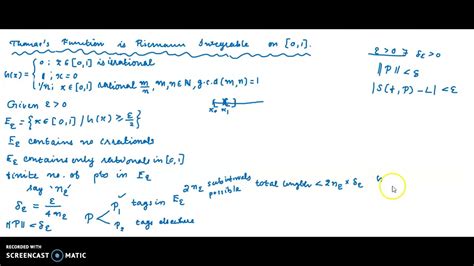 Thomae's Function is Riemann Integrable on [0,1].
h(x) = { 0 ; x ∈ [0,1] is irrational
1 ; x = 0
1/n ; x ∈ [0,1] rational m/n, m,n ∈ N, g.c.d(m,n) = 1
Given ε > 0
E_ε = {x ∈ [0,1] | h(x) ≥ ε/2}
E_ε contains no irrationals
E_ε contains only rationals in [0,1]
finite no. of pts in E_ε
say 'n_ε'
δ_ε = ε/4n_ε
||P|| < δ_ε
P < P_1 tags in E_ε
P_2 tags elsewhere
2n_ε subintervals possible
total lengths < 2n_ε × δ_ε
ε > 0 ∃ δ_ε > 0
||P|| < δ
|S(f,P) - L| < ε
RECORDED WITH
SCREENCAST MATIC